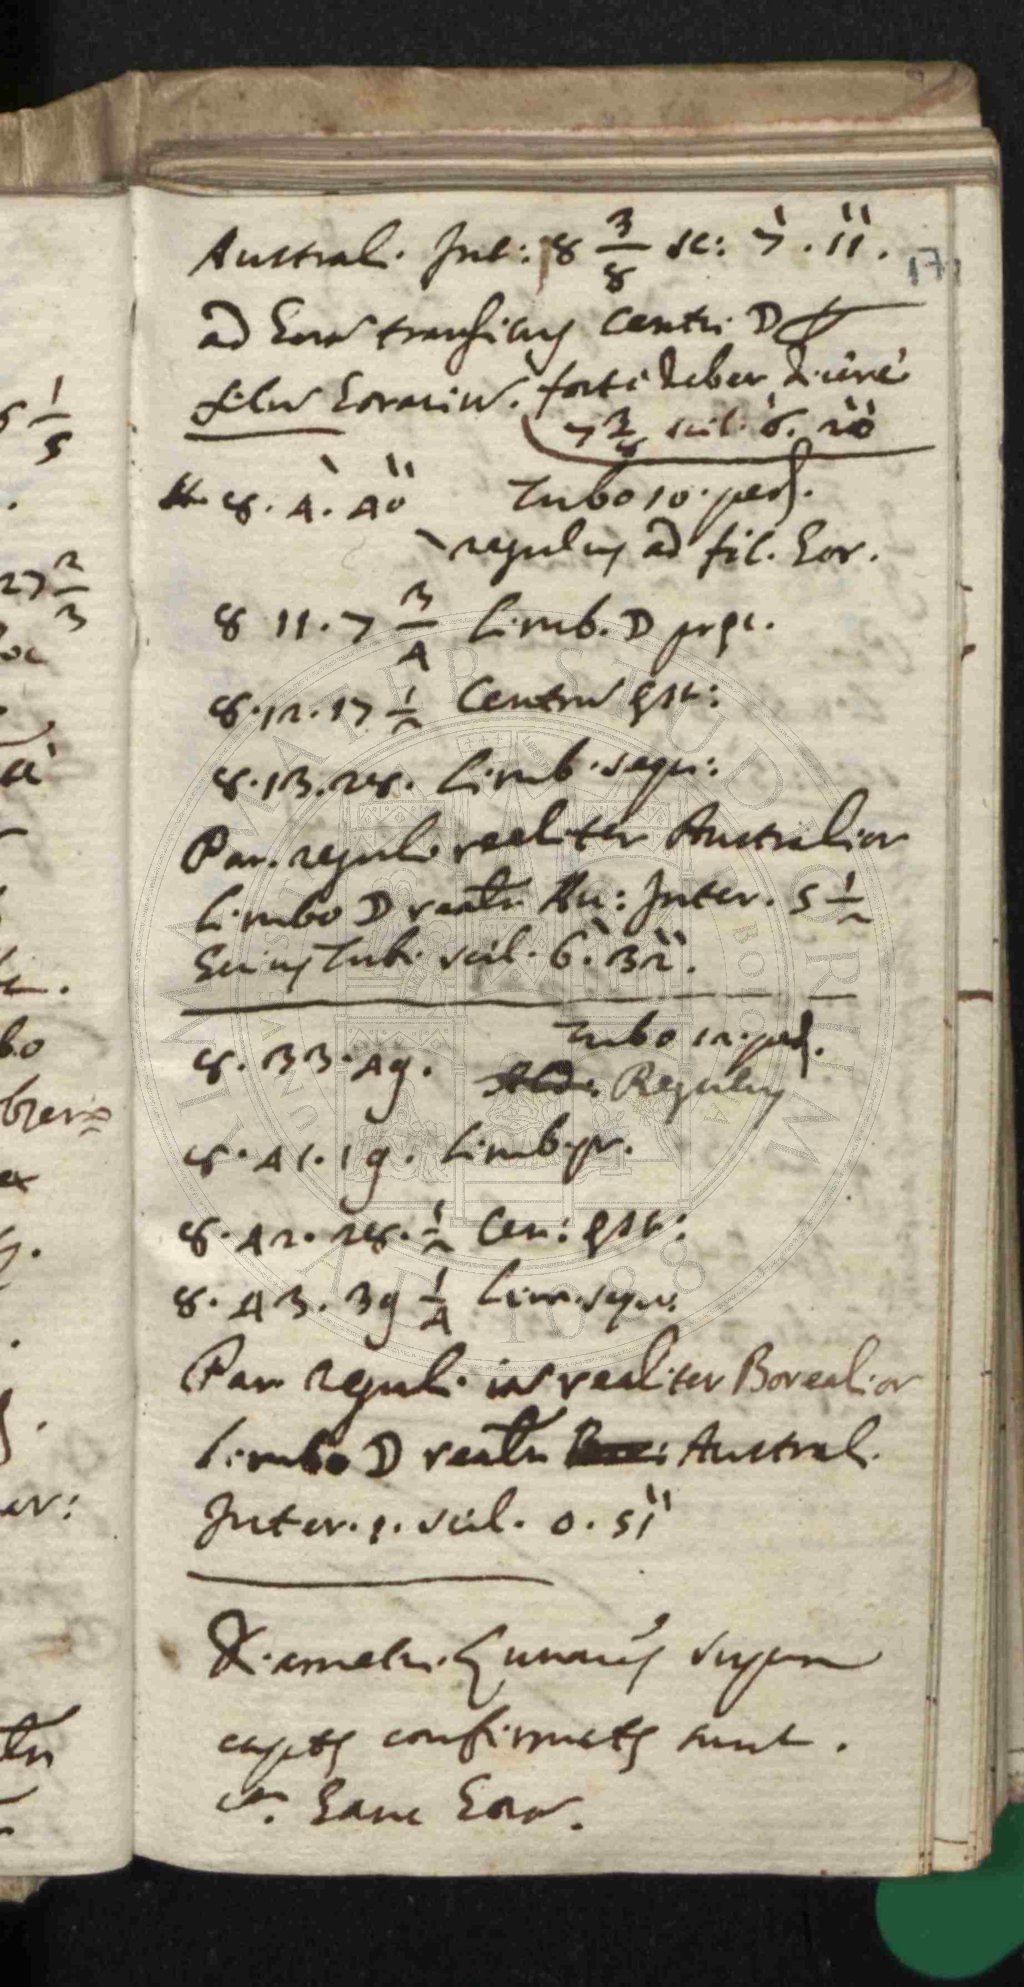 Austral. Int: 8 3/8 sc: 7'. 11''.
171
ad horā transitus centri D
filū horariū. forte debet dicere
7 3/8 scil. 6'. 20''
H. 8. 4'. 40'' Tubo 10. ped.
regulus ad fil. hor.
8 11. 7 3/4 Limb. D prec.
8. 12. 17 1/2 Centrū est:
8. 13. 28. Limb. sequ:
Par. reguli realiter Australior
limbo D realr Au: Inter. 5 1/2
huius Tubi scil. 6'. 32''.
8. 33. 49. Tubo 12. ped.
Regulus
8. 41. 19. Limb. pr.
8. 42. 28. 1/2 Cen: est:
8. 43. 39 1/4 Lim. sequ.
Par. reguli realiter Borealior
limbo D realr Austral.
Inter. 1. scil. 0. 51''
Diametri Lunares supra
captæ confirmatæ sunt.
hanc horā.
ALMA MATER STUDIORUM
A.D. 1088